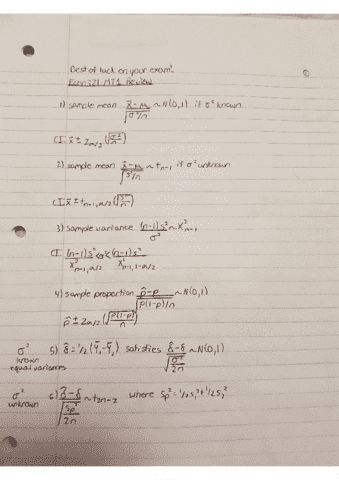 Best of luck on your exam!
Econ 321 MT1 Review
1) sample mean (x̄-μ)/√(σ²/n) ~ N(0,1) if σ² known
CI: x̄ ± Zα/2 (√(σ²/n))
2) sample mean (x̄-μ)/√(s²/n) ~ tn-1 if σ² unknown
CI: x̄ ± tn-1,α/2 (√(s²/n))
3) sample variance (n-1)s²/σ² ~ X²n-1
CI: (n-1)s²/X²n-1,α/2 < σ² < (n-1)s²/X²n-1,1-α/2
4) sample proportion (p̂-p)/√(p(1-p)/n) ~ N(0,1)
p̂ ± Zα/2 (√(p(1-p)/n))
σ² known equal variances 5) δ̂ = 1/2 (Ȳ₁-Ȳ₁) satisfies (δ̂-δ)/√(σ²/2n) ~ N(0,1)
σ² unknown 6) (δ̂-δ)/√(Sp²/2n) ~ t2n-2 where Sp² = 1/2 S₁² + 1/2 S₂²